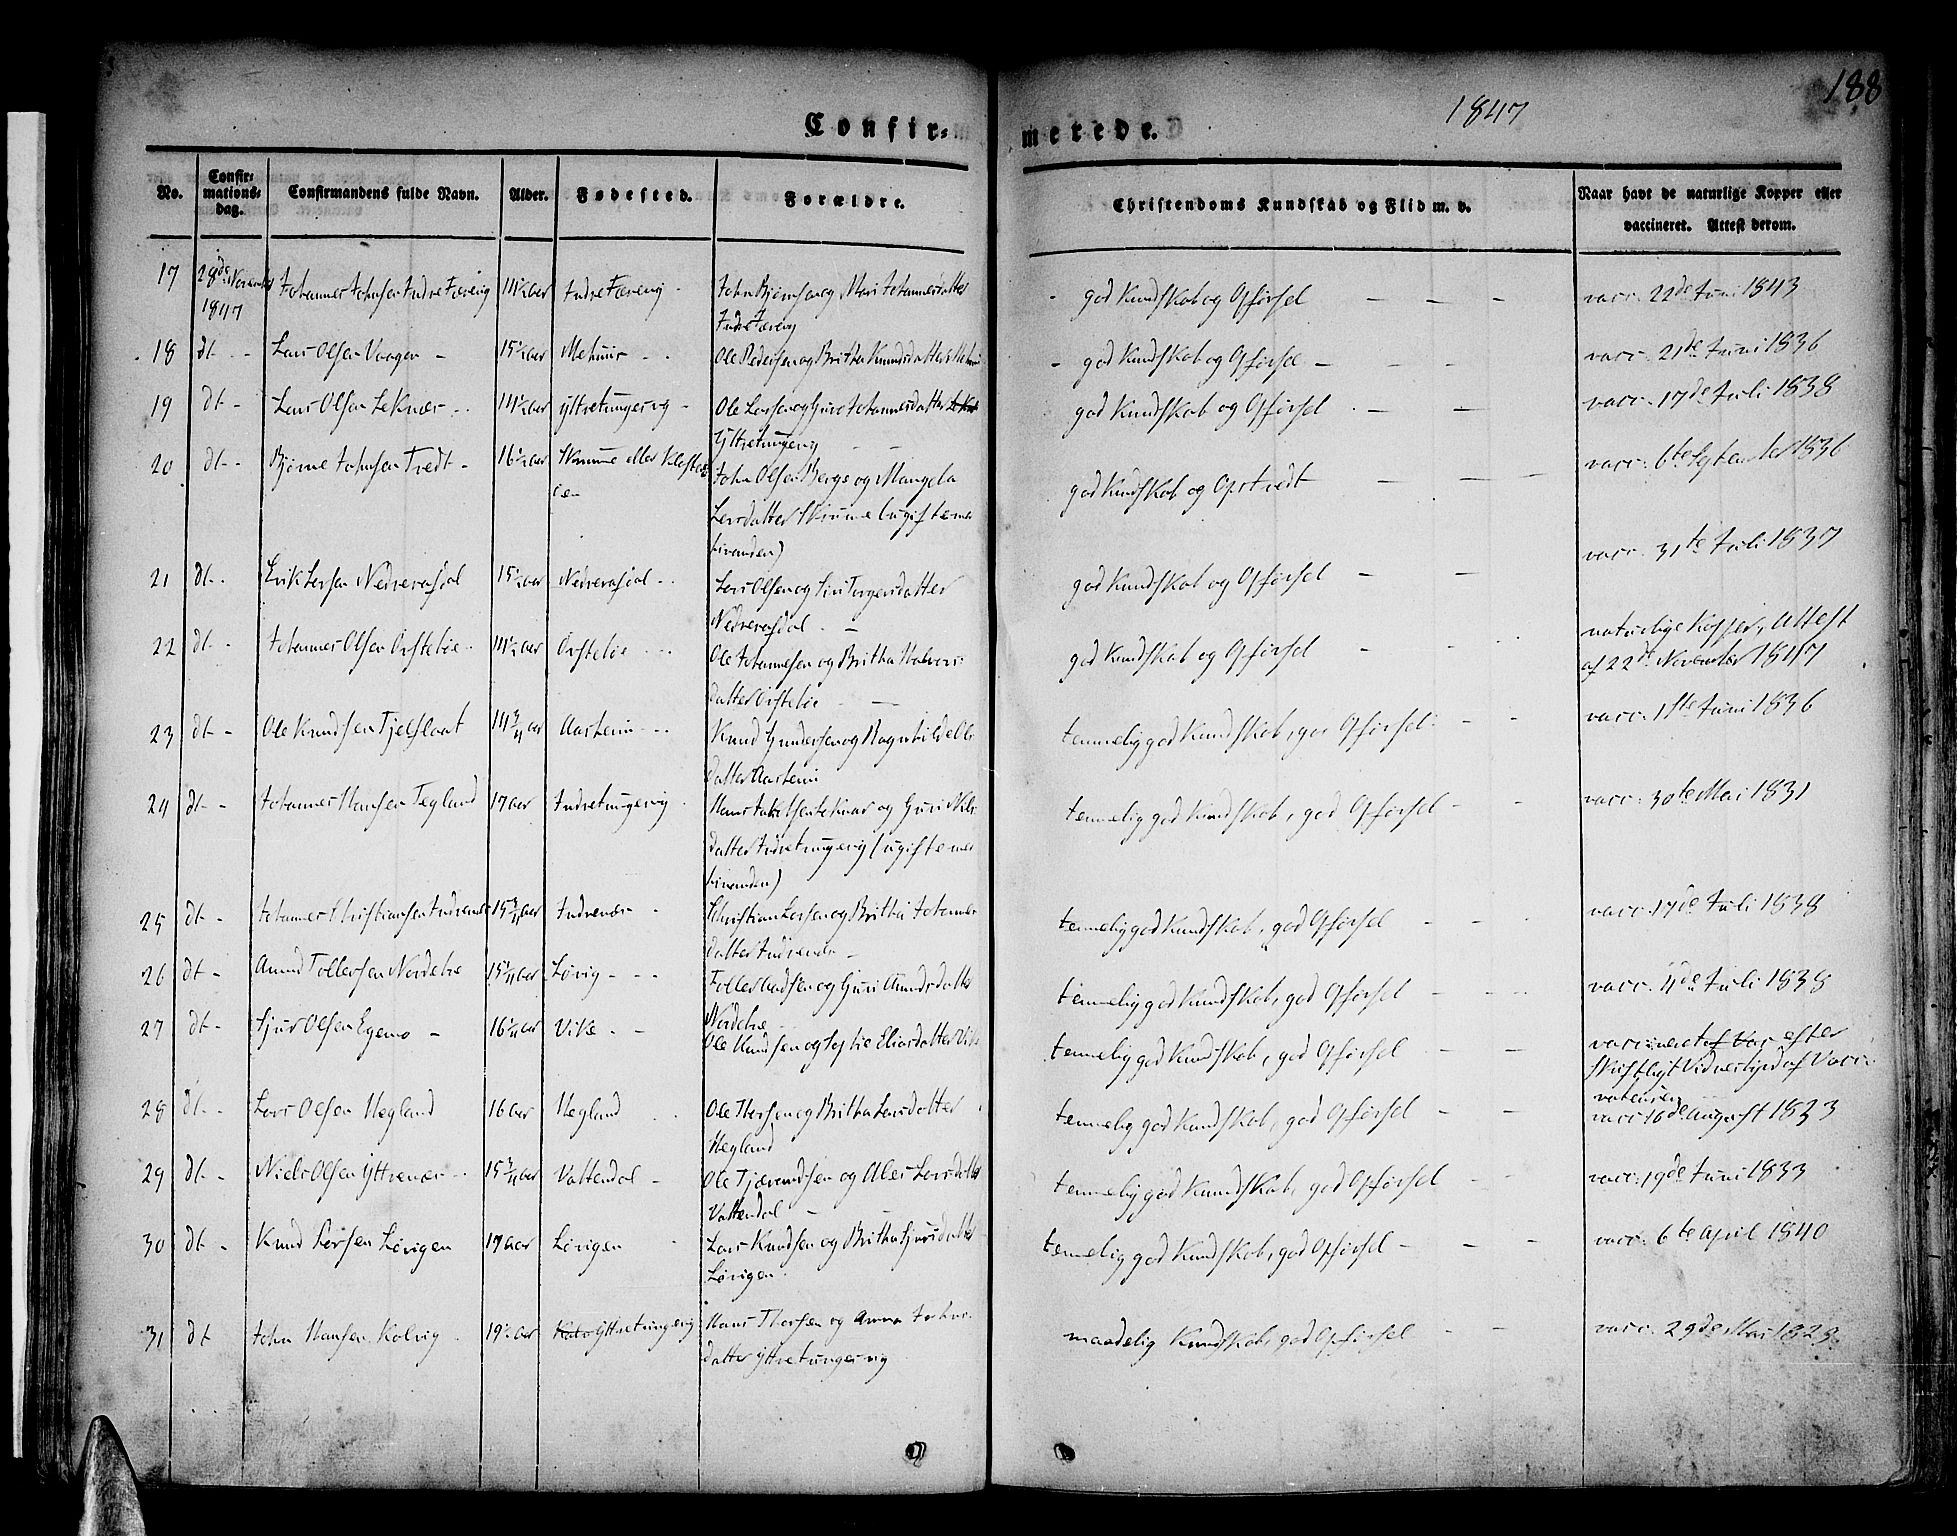 188
1847
Confir-
merede.
No.
Confir-
mations-
dag.
Confirmandens fulde Navn.
Alder.
Fødested.
Forældre.
Christendoms Kundskab og Flid m. v.
Naar havt de naturlige Kopper eller
vaccineret. Attest derom.
17 28de November Johannes Johnsen Indre 14½ aar Indre John Bjørnsen og Mari Johannesdatter god Kundskab og Opførsel vacc. 22de Juni 1843
1847 Indre
18 dt Lars Olsen Vaagen 15½ aar Mehuus Ole Pedersen og Britha Knudsdatter god Kundskab og Opførsel vacc. 21de Juni 1836
19 dt Lars Olsen Leknær 14½ aar Yttretungesvig Ole Larsen og Guri Johannesdatter god Kundskab og Opførsel vacc. 17de Juli 1838
Yttretungesvig
20 dt Bjørne Johnsen Tvedt 16½ aar Skrumme eller John Olsen Berge og Mangela god Kundskab og vacc. 6te September 1836
Larsdatter Skrumme (ugifte med
hinanden)
21 dt Erik Larsen Nedreraasdal 15½ aar Nedreraasdal Lars Olsen og Siri Torgersdatter god Kundskab og Opførsel vacc. 31te Juli 1837
Nedreraasdal
22 dt Johannes Olsen Ørsteløe 14½ aar Ørsteløe Ole Johannesen og Britha Halvors- god Kundskab og Opførsel naturlige Kopper, Attest
datter Ørsteløe af 22de November 1847
23 dt Ole Knudsen Tjelflaat 14¾ aar Aarhein Knud Gundersen og Ragnhilde Ols- temmelig god Kundskab, god Opførsel vacc. 1ste Juni 1836
datter Aarhein
24 dt Johannes Hansen Tegland 17 aar Indretungesvig Hans og Guri Nils- temmelig god Kundskab, god Opførsel vacc. 30te Mai 1831
datter Indretungesvig (ugifte med
hinanden)
25 dt Johannes Christiansen Indrenæs 15¾ aar Indrenæs Christian Larsen og Britha Johannes- temmelig god Kundskab, god Opførsel vacc. 17de Juli 1838
datter Indrenæs
26 dt Amund Tollefsen Nordelve 15¼ aar Løvig og Guri Amundsdatter temmelig god Kundskab, god Opførsel vacc. 4de Juli 1838
Nordelve
27 dt Sjur Olsen Egemo 16¼ aar Vike Ole Knudsen og Sophie Eliasdatter Vike temmelig god Kundskab, god Opførsel vaccineret efter
skriftligt Vidnesbyrd af Vacci-
28 dt Lars Olsen Hegland 16 aar Hegland Ole Thorsen og Britha Larsdatter temmelig god Kundskab, god Opførsel vacc. 16de August 1833
Hegland
29 dt Niels Olsen Yttrenæs 15¾ aar Vattendal Ole Tjærandsen og Ales Larsdatter temmelig god Kundskab, god Opførsel vacc. 19de Juni 1833
Vattendal
30 dt Knud Larsen Løvigen 17 aar Løvigen Lars Knudsen og Britha Sjursdatter temmelig god Kundskab, god Opførsel vacc. 6te April 1840
Løvigen
31 dt John Hansen Kolvig 19½ aar Yttretungesvig Hans Thorsen og Anna maadelig Kundskab, god Opførsel vacc. 29de Mai 1829
datter Yttretungesvig